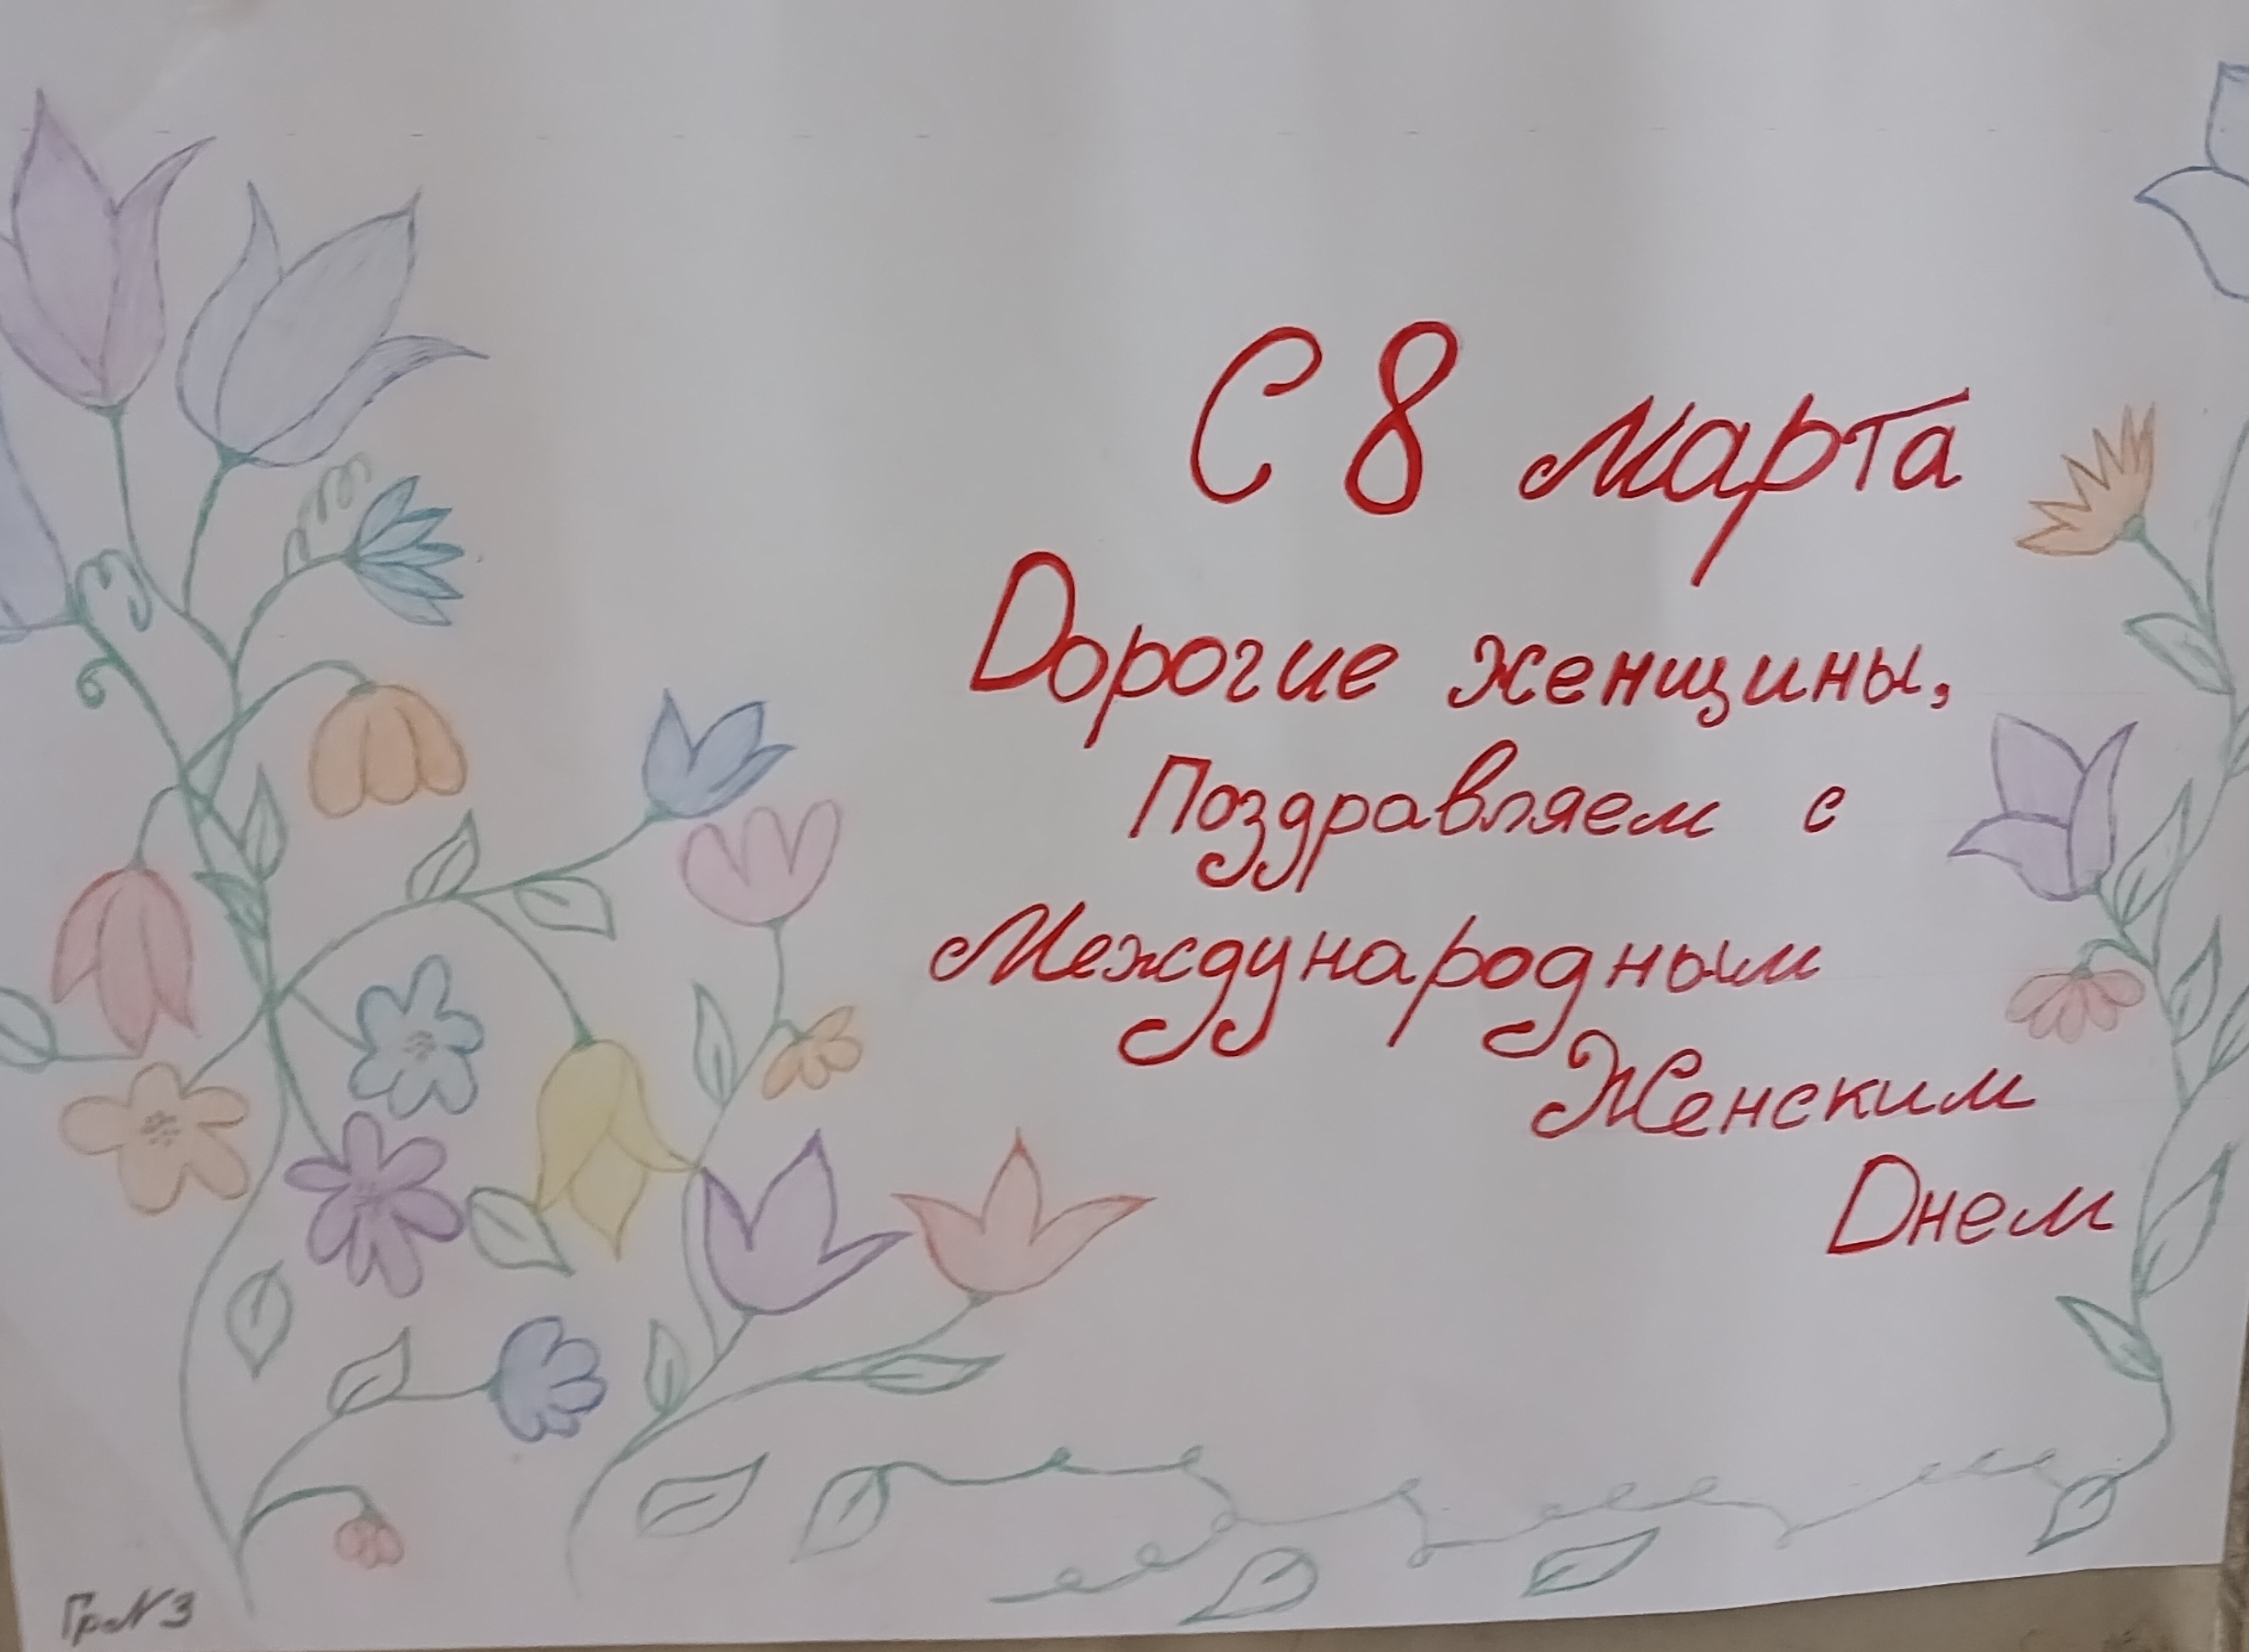 С 8 марта
Дорогие женщины,
Поздравляем с
Международным
Женским
Днем
Гр N 3